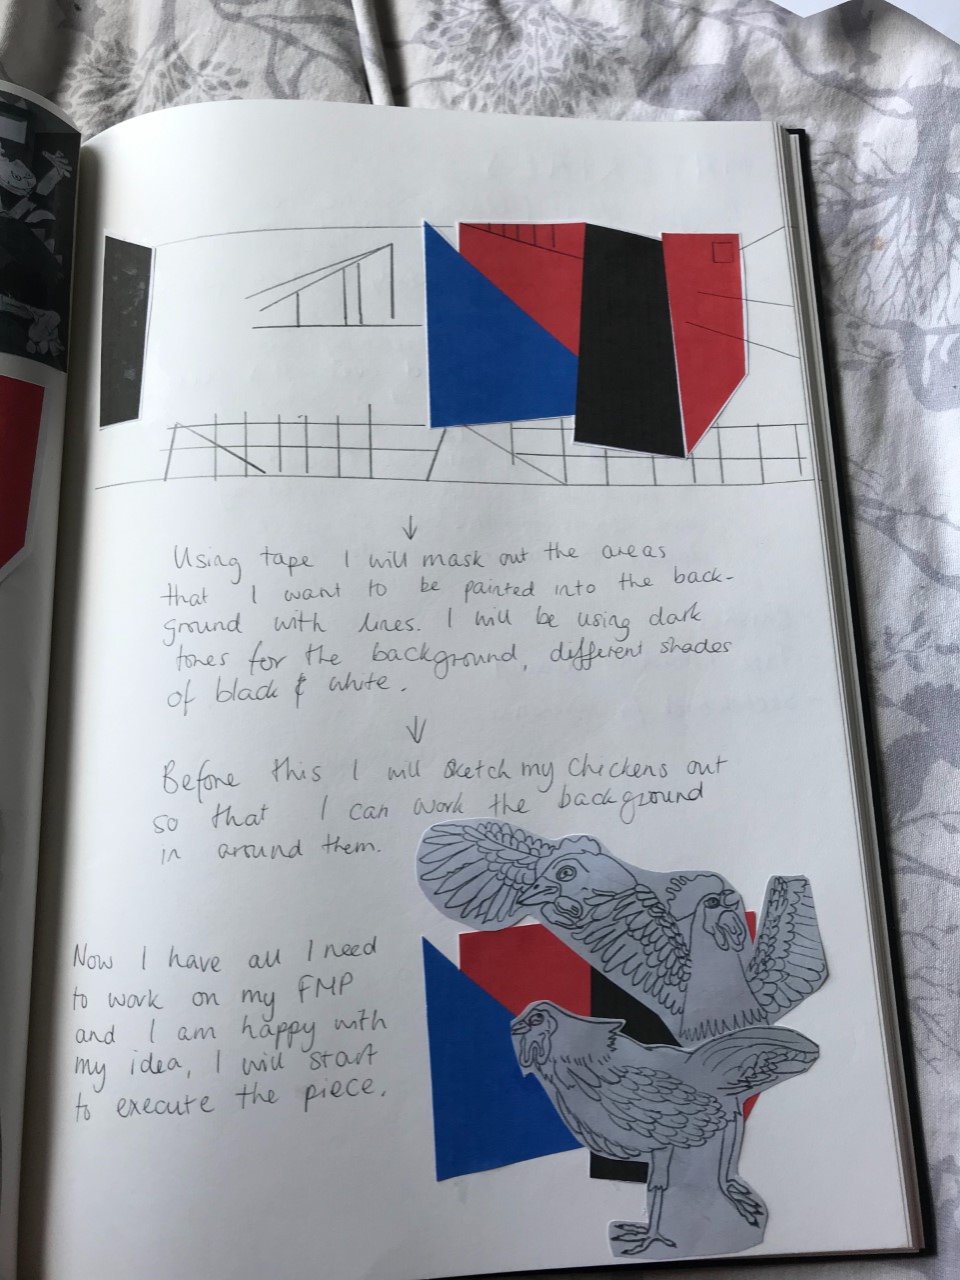 Using tape I will mask out the areas
that I want to be painted into the back-
ground with lines. I will be using dark
tones for the background, different shades
of black & white.
Before this I will sketch my chickens out
so that I can work the background
in around them.
Now I have all I need
to work on my FMP
and I am happy with
my idea, I will start
to execute the piece.